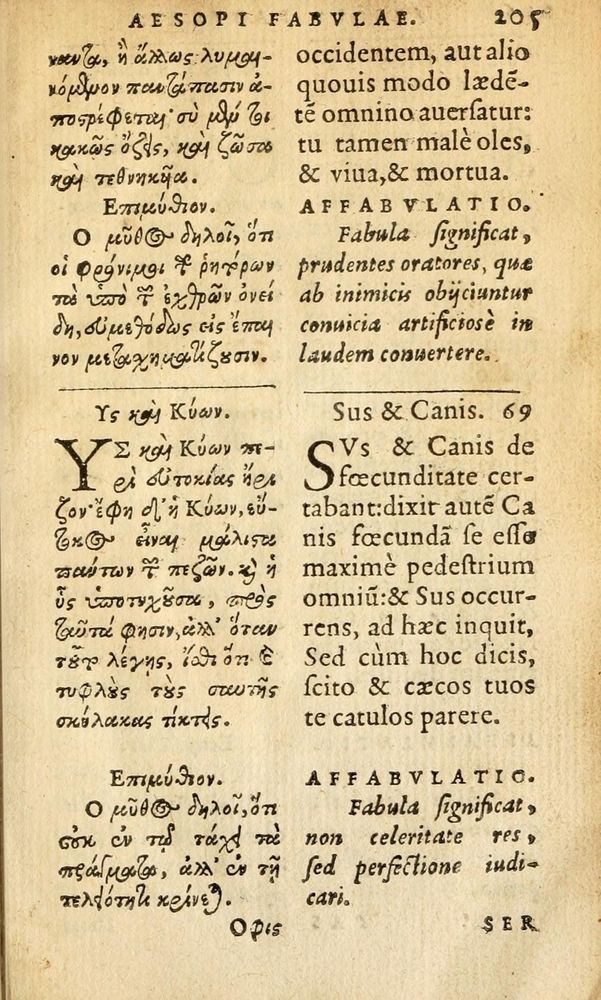 AESOPI FABVLAE. 205
νοντα, ἢ ἄλλως λυμαι-
νόμενον παντάπασιν ἀ-
ποστρέφεται· σὺ μέντοι
κακῶς ὄζεις, καὶ ζῶσα
καὶ τεθνηκῦα.
Επιμύθιον.
Ο μῦθος δηλοῖ, ὅτι
οἱ φρόνιμοι τῶν ῥητόρων
τὰ ὑπὸ τῶν ἐχθρῶν ὀνεί
δη, εὐμεθόδως εἰς ἔπαι
νον μετασχηματίζουσιν.
Υς καὶ Κύων.
ΥΣ καὶ Κύων πε-
ρὶ εὐτοκίας ἤρι
ζον· ἔφη δ' ἡ Κύων, εὔ-
τοκος εἶναι μάλιστα
πάντων τῶν πεζῶν. καὶ ἡ
ὗς ὑποτυχοῦσα, πρὸς
ταῦτά φησιν, ἀλλ' ὅταν
τοῦτο λέγῃς, ἴσθι ὅτι καὶ
τυφλοὺς τοὺς σαυτῆς
σκύλακας τίκτεις.
Επιμύθιον.
Ο μῦθος δηλοῖ, ὅτι
οὐκ ἐν τῷ τάχει τὰ
πράγματα, ἀλλ' ἐν τῇ
τελειότητι κρίνεται.
Οφις
occidentem, aut alio
quouis modo lædē-
tē omnino auersatur:
tu tamen malè oles,
& viua, & mortua.
AFFABVLATIO.
Fabula significat,
prudentes oratores, quæ
ab inimicis obijciuntur
conuicia artificiosè in
laudem conuertere.
Sus & Canis. 69
SVs & Canis de
fœcunditate cer-
tabant: dixit autē Ca
nis fœcundā se esse
maximè pedestrium
omniū: & Sus occur-
rens, ad hæc inquit,
Sed cùm hoc dicis,
scito & cæcos tuos
te catulos parere.
AFFABVLATIO.
Fabula significat,
non celeritate res,
sed perfectione iudi-
cari.
SER